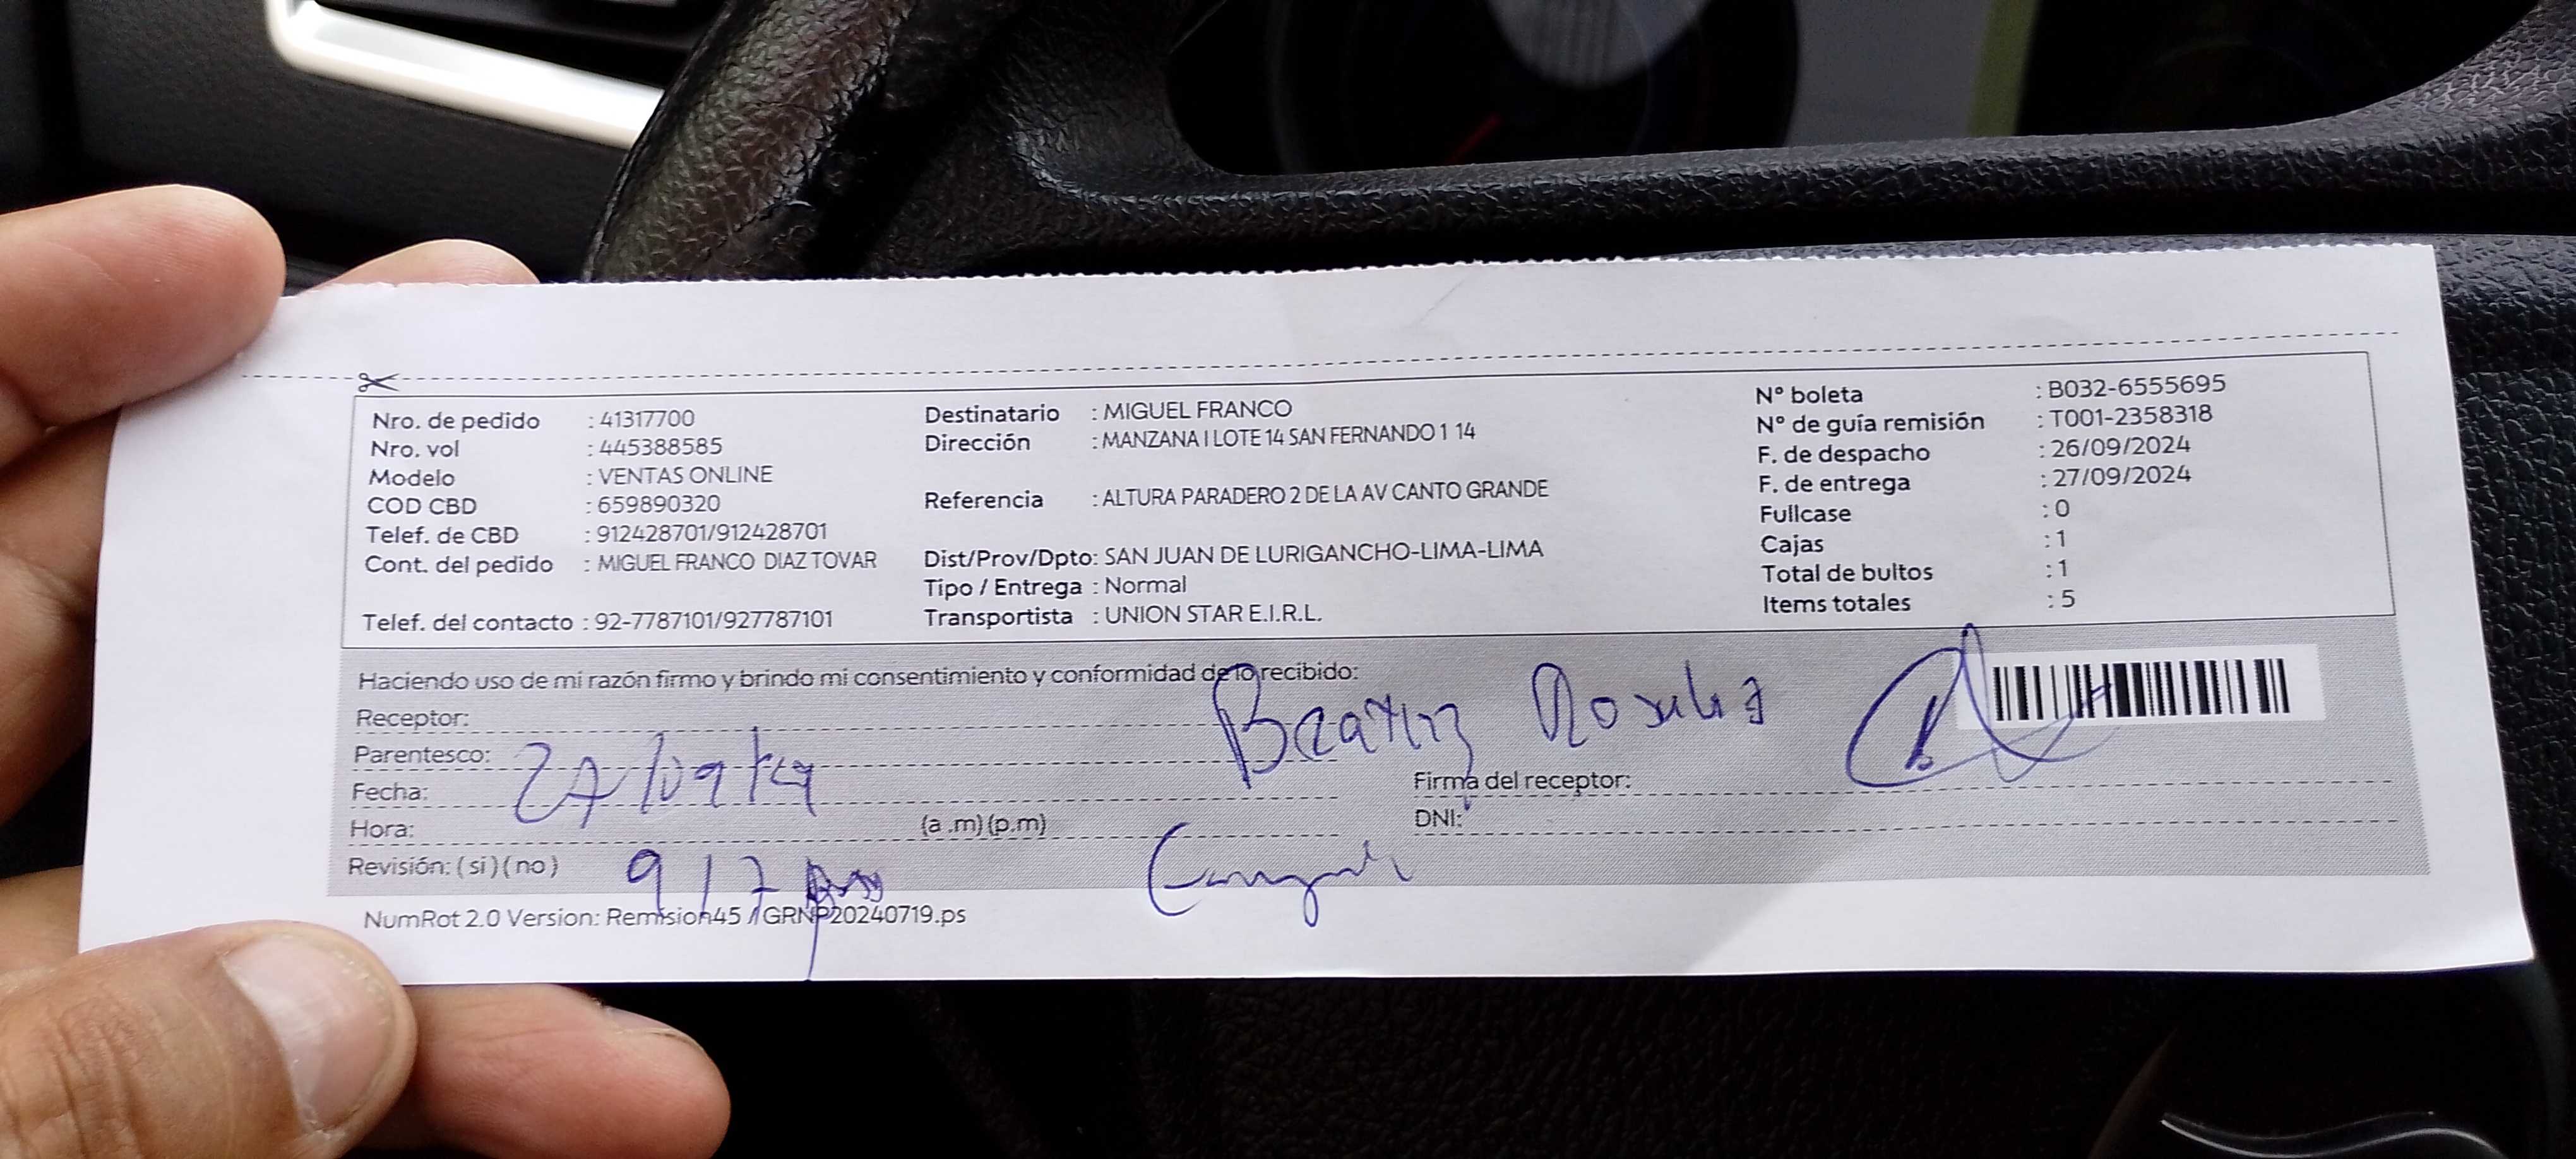 Nro. de pedido : 41317700
Nro. vol : 445388585
Modelo : VENTAS ONLINE
COD CBD : 659890320
Telef. de CBD : 912428701/912428701
Cont. del pedido : MIGUEL FRANCO DIAZ TOVAR
Telef. del contacto : 92-7787101/927787101
Destinatario : MIGUEL FRANCO
Dirección : MANZANA I LOTE 14 SAN FERNANDO 1 14
Referencia : ALTURA PARADERO 2 DE LA AV CANTO GRANDE
Dist/Prov/Dpto: SAN JUAN DE LURIGANCHO-LIMA-LIMA
Tipo / Entrega : Normal
Transportista : UNION STAR E.I.R.L.
Nº boleta : B032-6555695
Nº de guía remisión : T001-2358318
F. de despacho : 26/09/2024
F. de entrega : 27/09/2024
Fullcase : 0
Cajas : 1
Total de bultos : 1
Items totales : 5
Haciendo uso de mi razón firmo y brindo mi consentimiento y conformidad de lo recibido:
Receptor: Beatriz
Parentesco:
Fecha: 27/09/24
Hora: (a .m) (p.m)
Revisión: ( si ) ( no )
Firma del receptor:
DNI:
NumRot 2.0 Version: Remision45 / GRNP20240719.ps